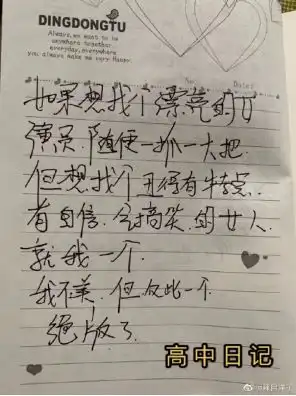 DINGDONGTU
Always,we want to be
anywhere together.
everyday,everywhere
you always make me very Happy.
No:
Date:
如果想找个漂亮的女
演员.随便一抓一大把.
但想找个丑得有特点.
有自信.会搞笑.的女人.
就我一个.
我不美.但仅此一个.
绝版了
高中日记